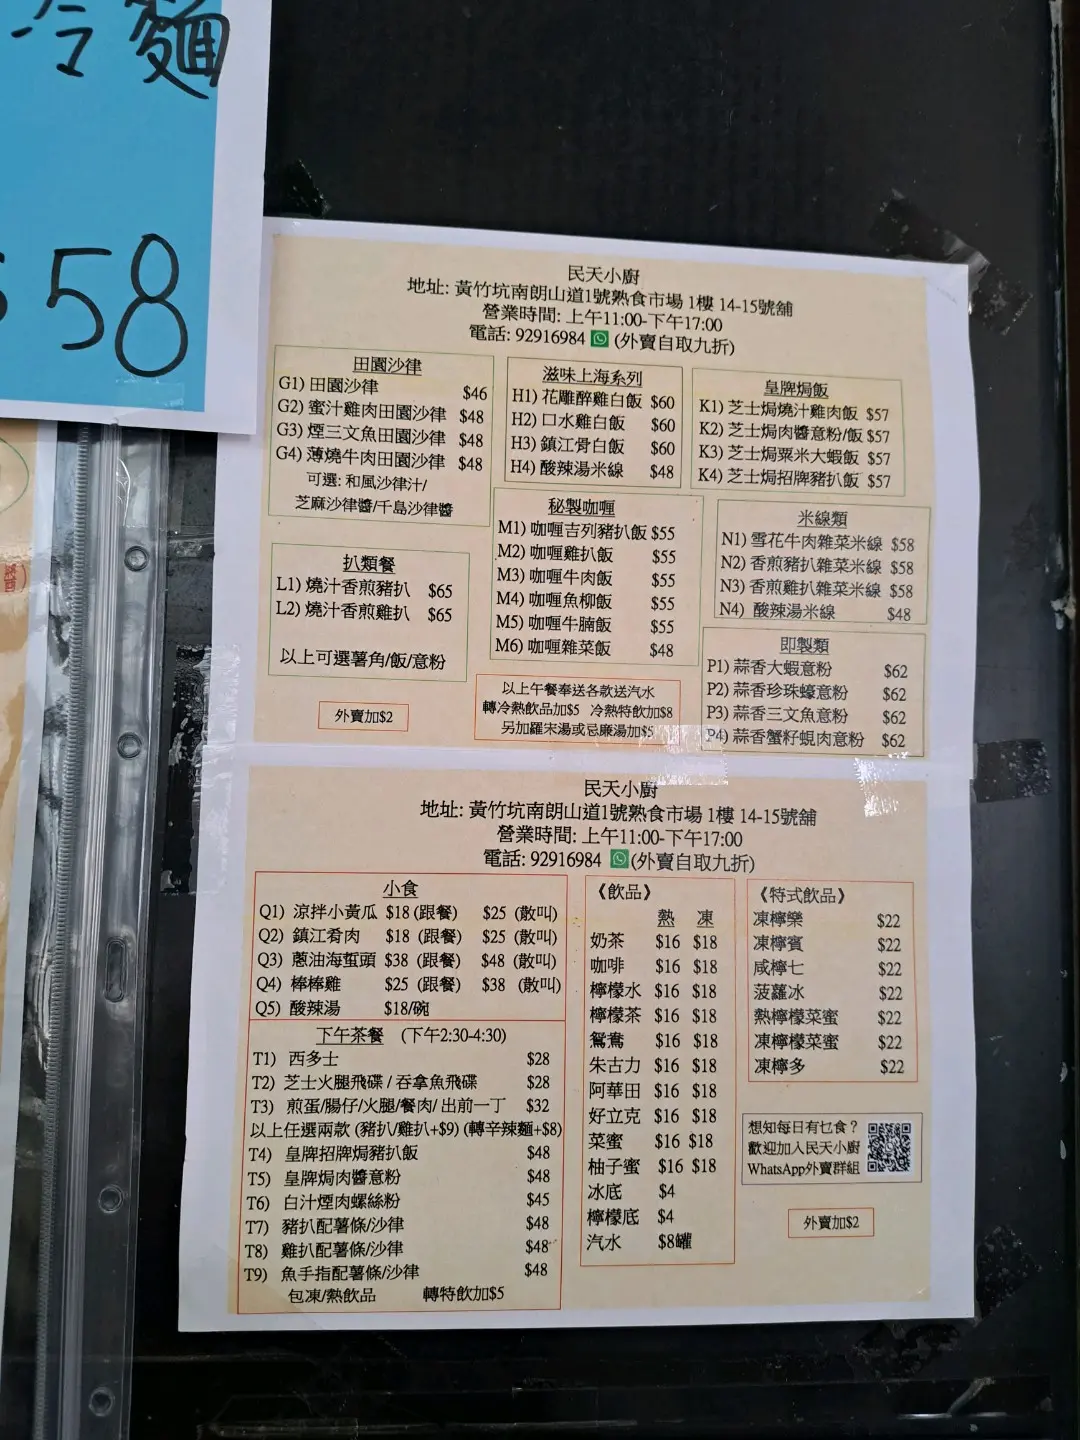 冷麵
58
民天小廚
地址: 黃竹坑南朗山道1號熟食市場 1樓 14-15號舖
營業時間: 上午11:00-下午17:00
電話: 92916984 (外賣自取九折)
田園沙律
G1) 田園沙律 $46
G2) 蜜汁雞肉田園沙律 $48
G3) 煙三文魚田園沙律 $48
G4) 薄燒牛肉田園沙律 $48
可選: 和風沙律汁/
芝麻沙律醬/千島沙律醬
滋味上海系列
H1) 花雕醉雞白飯 $60
H2) 口水雞白飯 $60
H3) 鎮江骨白飯 $60
H4) 酸辣湯米線 $48
皇牌焗飯
K1) 芝士焗燒汁雞肉飯 $57
K2) 芝士焗肉醬意粉/飯 $57
K3) 芝士焗粟米大蝦飯 $57
K4) 芝士焗招牌豬扒飯 $57
扒類餐
L1) 燒汁香煎豬扒 $65
L2) 燒汁香煎雞扒 $65
以上可選薯角/飯/意粉
秘製咖喱
M1) 咖喱吉列豬扒飯 $55
M2) 咖喱雞扒飯 $55
M3) 咖喱牛肉飯 $55
M4) 咖喱魚柳飯 $55
M5) 咖喱牛腩飯 $55
M6) 咖喱雜菜飯 $48
米線類
N1) 雪花牛肉雜菜米線 $58
N2) 香煎豬扒雜菜米線 $58
N3) 香煎雞扒雜菜米線 $58
N4) 酸辣湯米線 $48
即製類
P1) 蒜香大蝦意粉 $62
P2) 蒜香珍珠蠔意粉 $62
P3) 蒜香三文魚意粉 $62
P4) 蒜香蟹籽蜆肉意粉 $62
外賣加$2
以上午餐奉送各款送汽水
轉冷熱飲品加$5 冷熱特飲加$8
另加羅宋湯或忌廉湯加$5
民天小廚
地址: 黃竹坑南朗山道1號熟食市場 1樓 14-15號舖
營業時間: 上午11:00-下午17:00
電話: 92916984 (外賣自取九折)
小食
Q1) 涼拌小黃瓜 $18 (跟餐) $25 (散叫)
Q2) 鎮江肴肉 $18 (跟餐) $25 (散叫)
Q3) 蔥油海蜇頭 $38 (跟餐) $48 (散叫)
Q4) 棒棒雞 $25 (跟餐) $38 (散叫)
Q5) 酸辣湯 $18/碗
下午茶餐 (下午2:30-4:30)
T1) 西多士 $28
T2) 芝士火腿飛碟 / 吞拿魚飛碟 $28
T3) 煎蛋/腸仔/火腿/餐肉/ 出前一丁 $32
以上任選兩款 (豬扒/雞扒+$9) (轉辛辣麵+$8)
T4) 皇牌招牌焗豬扒飯 $48
T5) 皇牌焗肉醬意粉 $48
T6) 白汁煙肉螺絲粉 $45
T7) 豬扒配薯條/沙律 $48
T8) 雞扒配薯條/沙律 $48
T9) 魚手指配薯條/沙律 $48
包凍/熱飲品 轉特飲加$5
《飲品》
熱 凍
奶茶 $16 $18
咖啡 $16 $18
檸檬水 $16 $18
檸檬茶 $16 $18
鴛鴦 $16 $18
朱古力 $16 $18
阿華田 $16 $18
好立克 $16 $18
菜蜜 $16 $18
柚子蜜 $16 $18
冰底 $4
檸檬底 $4
汽水 $8罐
《特式飲品》
凍檸樂 $22
凍檸賓 $22
咸檸七 $22
菠蘿冰 $22
熱檸檬菜蜜 $22
凍檸檬菜蜜 $22
凍檸多 $22
想知每日有乜食?
歡迎加入民天小廚
WhatsApp外賣群組
外賣加$2